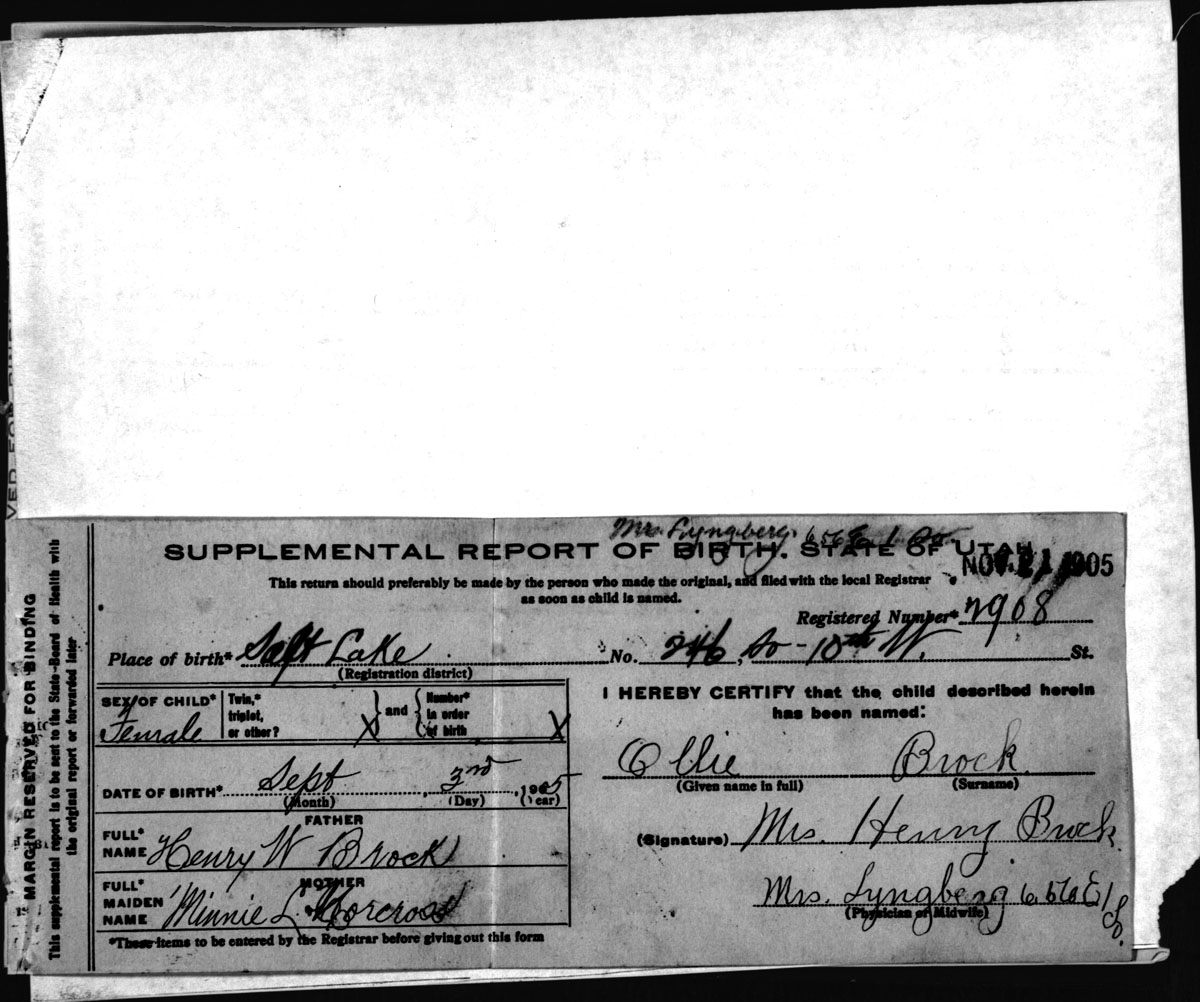 Mrs. Lyngberg. 656 E. 1 So.
SUPPLEMENTAL REPORT OF BIRTH. STATE OF UTAH
NOV 21 1905
This return should preferably be made by the person who made the original, and filed with the local Registrar
as soon as child is named.
Registered Number* 2908
Place of birth* Salt Lake No. 246, So - 10th W. St.
(Registration district)
SEX OF CHILD* Female
Twin,* triplet, or other? X
and
Number* in order of birth X
DATE OF BIRTH* Sept 3rd, 1905
(Month) (Day) (Year)
FATHER
FULL* NAME Henry W Brock
MOTHER
FULL* MAIDEN NAME Minnie L Norcross
*These items to be entered by the Registrar before giving out this form
I HEREBY CERTIFY that the child described herein
has been named:
Ollie Brock.
(Given name in full) (Surname)
(Signature) Mrs. Henry Brock.
Mrs. Lyngberg 656 E 1 So.
(Physician or Midwife)
MARGIN RESERVED FOR BINDING
This supplemental report is to be sent to the State Board of Health with
the original report or forwarded later